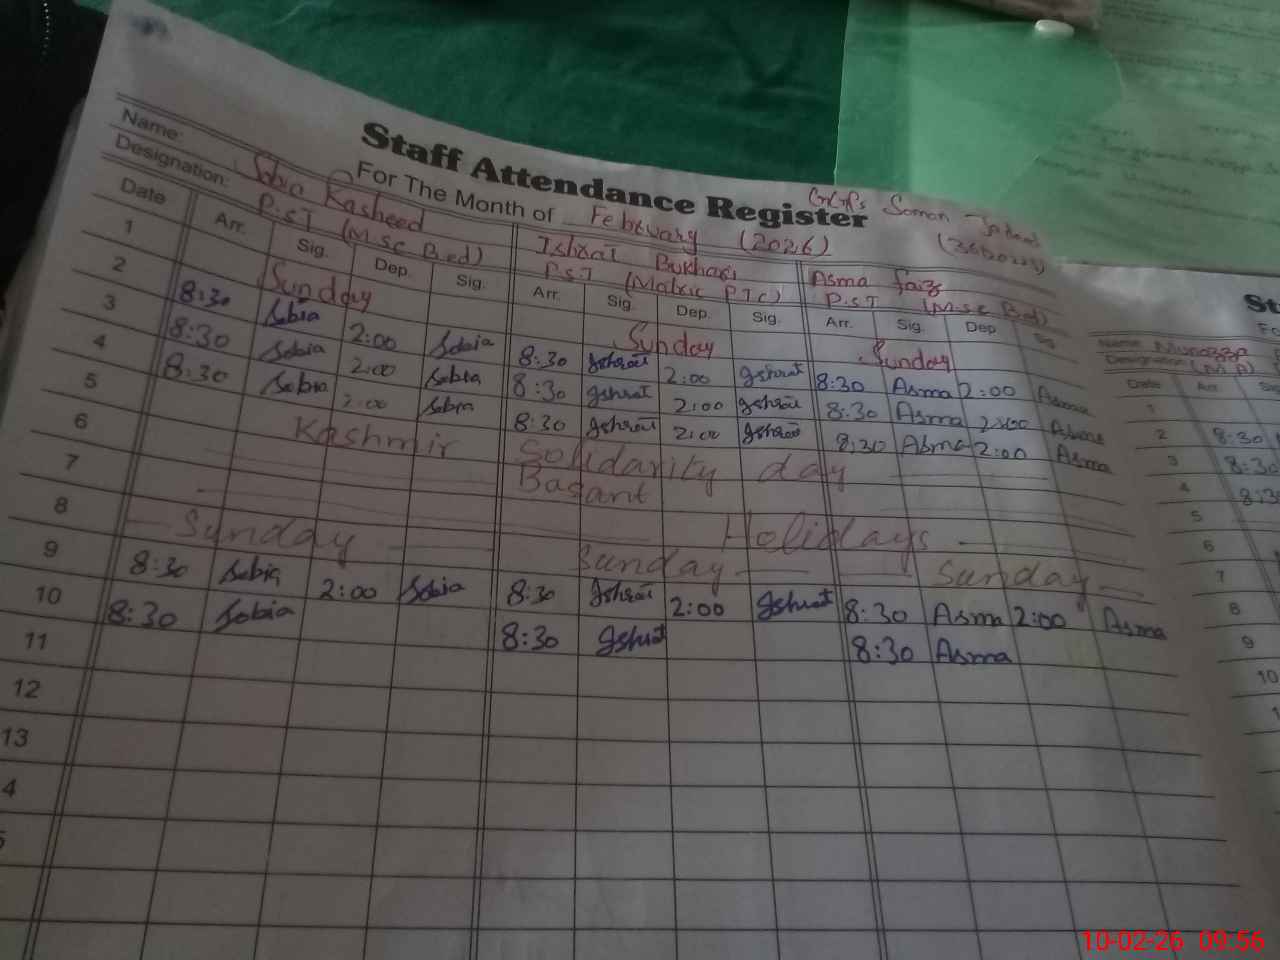 Staff Attendance Register
GGPS Saman
For The Month of February (2026)
Name: Sobia Rasheed Ishrat Bukhari Asma Faiz
Designation: P.S.T (M.Sc B.ed) P.S.T (Matric P.T.C) P.S.T (M.S.c B.ed)
Date Arr. Sig. Dep. Sig. Arr. Sig. Dep. Sig. Arr. Sig. Dep Sig
1 Sunday Sunday Sunday
2 8:30 Sobia 2:00 Sobia 8:30 Ishrat 2:00 Ishrat 8:30 Asma 2:00 Asma
3 8:30 Sobia 2:00 Sobia 8:30 Ishrat 2:00 Ishrat 8:30 Asma 2:00 Asma
4 8:30 Sobia 2:00 Sobia 8:30 Ishrat 2:00 Ishrat 8:30 Asma 2:00 Asma
5 Kashmir Solidarity day
6 Basant
7 Holidays
8 Sunday Sunday Sunday
9 8:30 Sobia 2:00 Sobia 8:30 Ishrat 2:00 Ishrat 8:30 Asma 2:00 Asma
10 8:30 Sobia 8:30 Ishrat 8:30 Asma
11
12
13
4
5
St
Name: Munazza
Designation: (M.A)
Date Arr
1
2 8:30
3 8:30
4 8:30
5
6
7
8
9
10
10-02-26 09:56